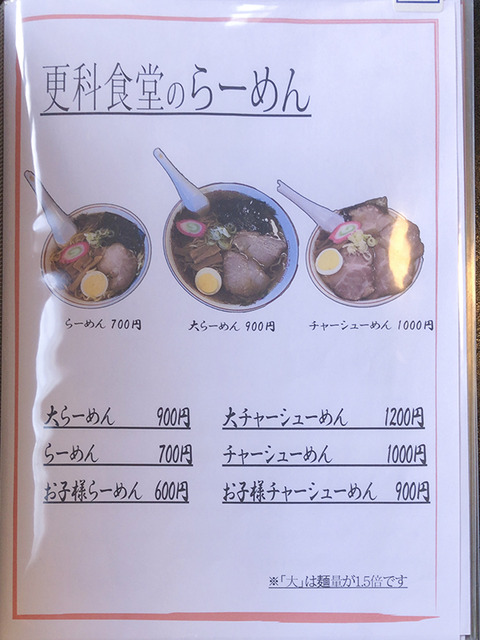 更科食堂のらーめん
らーめん 700円
大らーめん 900円
チャーシューめん 1000円
大らーめん 900円
大チャーシューめん 1200円
らーめん 700円
チャーシューめん 1000円
お子様らーめん 600円
お子様チャーシューめん 900円
※「大」は麺量が1.5倍です